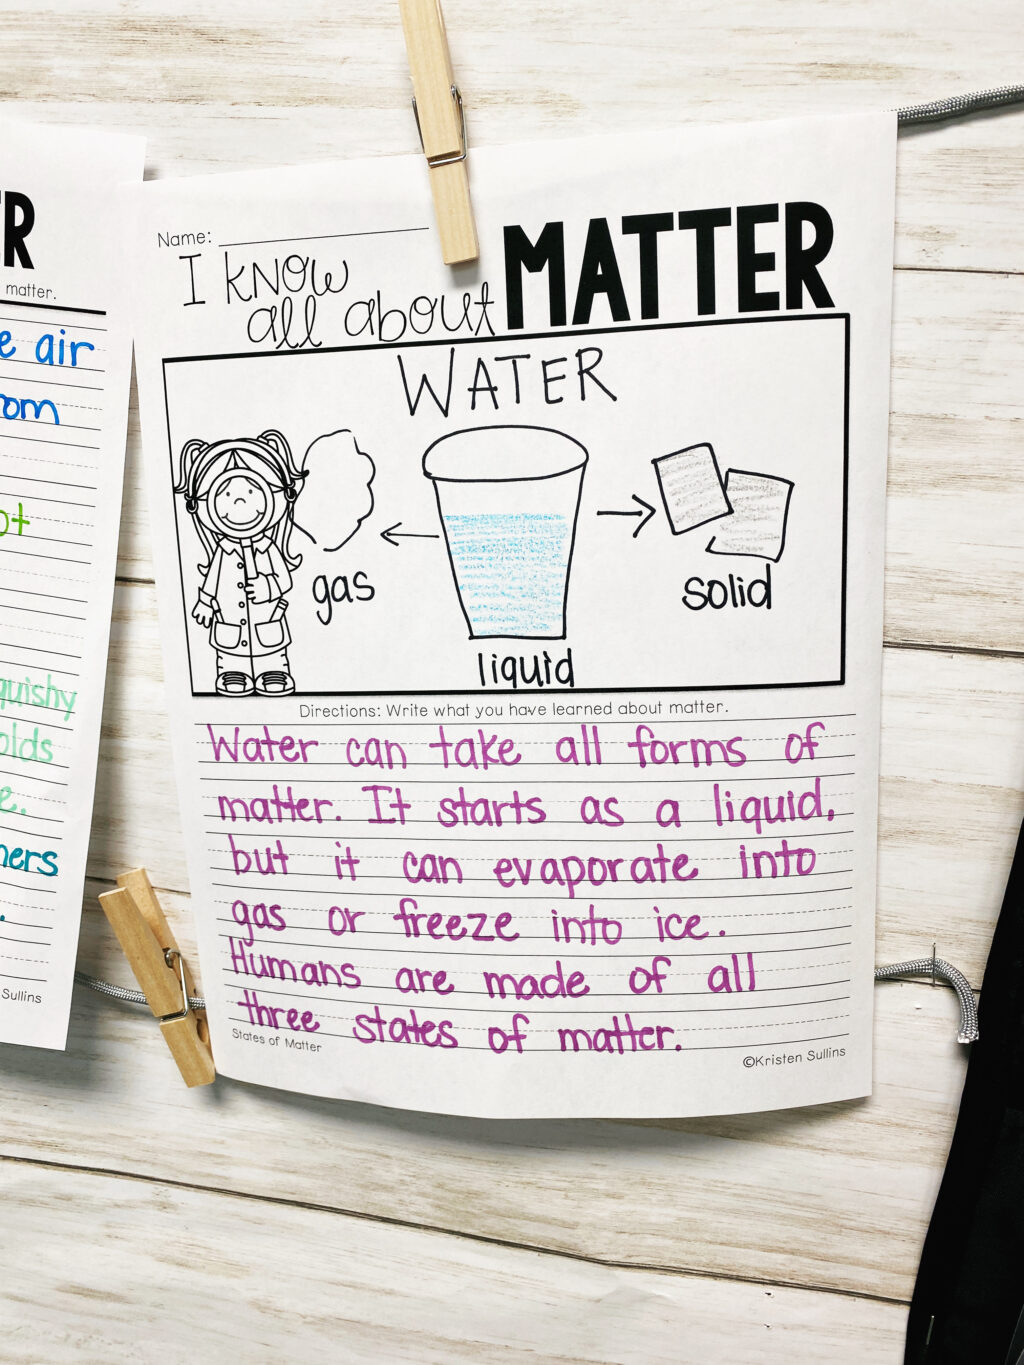 R
matter.
e air
om
ot
quishy
olds
e.
ners
.
Sullins
Name:
I know
all about MATTER
WATER
gas
liquid
solid
Directions: Write what you have learned about matter.
Water can take all forms of
matter. It starts as a liquid,
but it can evaporate into
gas or freeze into ice.
Humans are made of all
three states of matter.
States of Matter
©Kristen Sullins